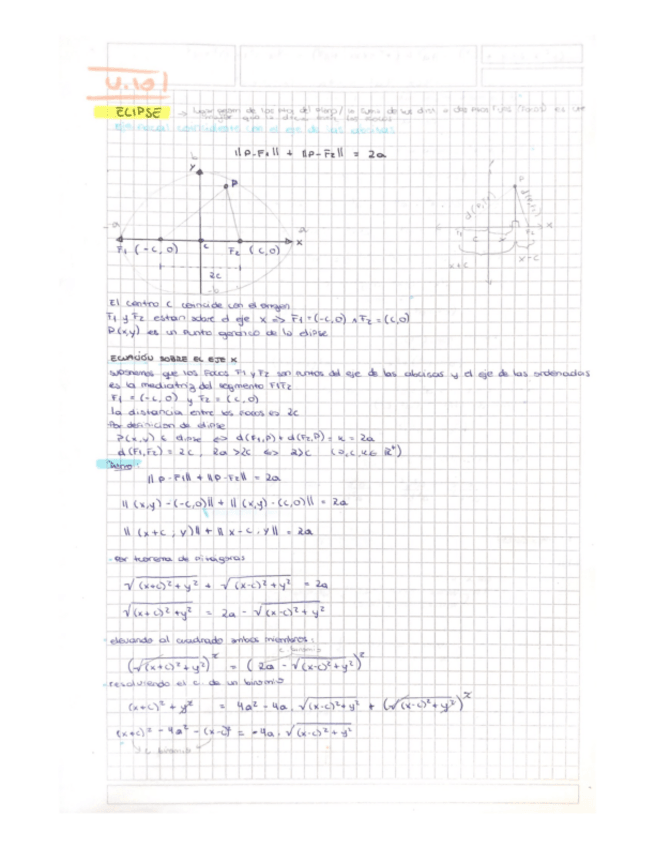 U.10
ELIPSE → Lugar geom de los ptos del plano / la suma de las dist a dos ptos fijos (focos) es
que la dist entre los focos
coincidente con el eje de las abcisas
||P-F1|| + ||P-F2|| = 2a
b
y
P
-a
a
x
F1 (-c, 0)
c
F2 (c, 0)
2c
-b
P
F2
x
c
x+c
x-c
El centro C coincide con el origen
F1 y F2 están sobre el eje x => F1 = (-c,0) ∧ F2 = (c,0)
P(x,y) es un punto genérico de la elipse
ECUACIÓN SOBRE EL EJE X
suponemos que los focos F1 y F2 son puntos del eje de las abcisas y el eje de las ordenadas
es la mediatriz del segmento F1F2
F1 = (-c, 0) y F2 = (c, 0)
la distancia entre los focos es 2c
Por definicion de elipse
P(x,y) ∈ elipse <=> d(F1,P) + d(F2,P) = k = 2a
d(F1,F2) = 2c , 2a > 2c <=> a > c (a, c, k ∈ R⁺)
||P-F1|| + ||P-F2|| = 2a
|| (x,y) - (-c,0)|| + || (x,y) - (c,0)|| = 2a
|| (x+c, y)|| + || x-c, y|| = 2a
Por teorema de pitagoras
√(x+c)² + y² + √(x-c)² + y² = 2a
√(x+c)² + y² = 2a - √(x-c)² + y²
elevando al cuadrado ambos miembros:
c. binomio
(√(x+c)² + y²)² = (2a - √(x-c)² + y²)²
resolviendo el c. de un binomio
(x+c)² + y² = 4a² - 4a . √(x-c)² + y² + (√(x-c)² + y²)²
(x+c)² - 4a² - (x-c)² = -4a . √(x-c)² + y²
c. binomio